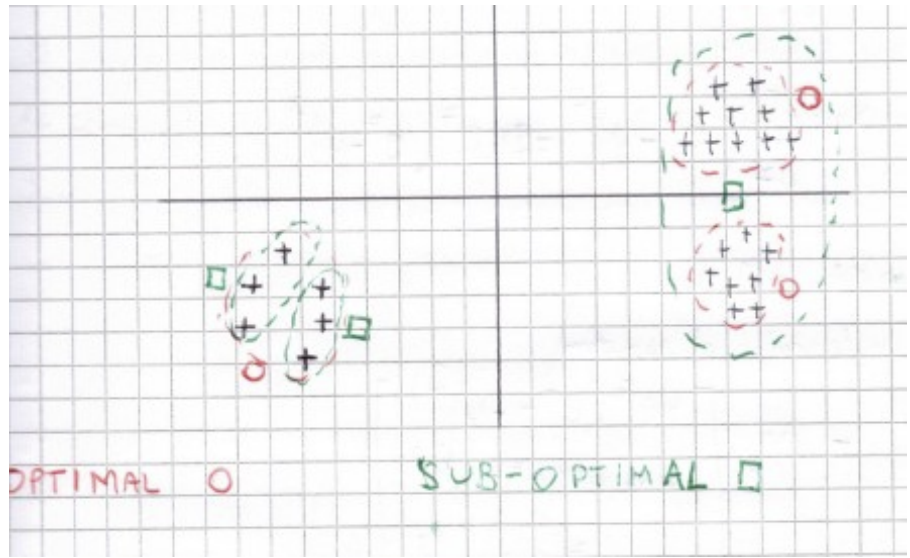 OPTIMAL SUB-OPTIMAL